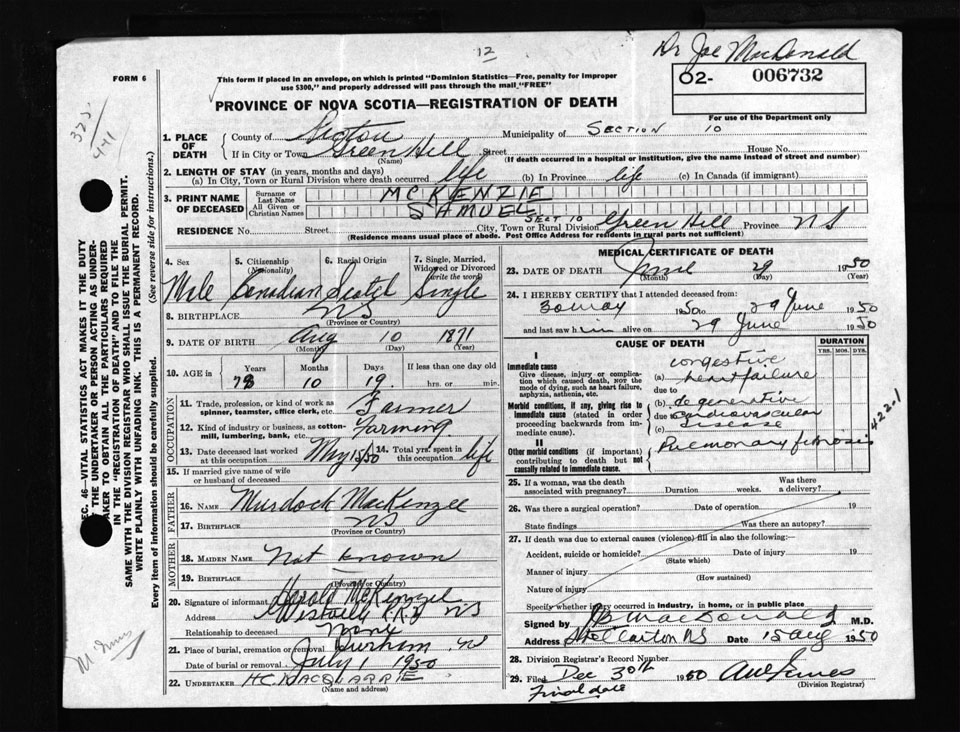 12
Dr Joe MacDonald
FORM 6
This form if placed in an envelope, on which is printed "Dominion Statistics—Free, penalty for improper
use $300," and properly addressed will pass through the mail "FREE"
O2- 006732
For use of the Department only
PROVINCE OF NOVA SCOTIA—REGISTRATION OF DEATH
325
441
1. PLACE OF DEATH County of Pictou Municipality of SECTION 10
If in City or Town Green Hill Street House No.
(Name) (If death occurred in a hospital or institution, give the name instead of street and number)
2. LENGTH OF STAY (in years, months and days)
(a) In City, Town or Rural Division where death occurred life (b) In Province life (c) In Canada (if immigrant)
3. PRINT NAME OF DECEASED Surname or Last Name MCKENZIE
All Given or Christian Names SAMUEL
RESIDENCE No. Street City, Town or Rural Division SECT 10 Green Hill Province NS
(Residence means usual place of abode. Post Office Address for residents in rural parts not sufficient)
EC. 46—VITAL STATISTICS ACT MAKES IT THE DUTY
F THE UNDERTAKER OR PERSON ACTING AS UNDER-
TAKER TO OBTAIN ALL THE PARTICULARS REQUIRED
IN THE "REGISTRATION OF DEATH" AND TO FILE THE
SAME WITH THE DIVISION REGISTRAR WHO SHALL ISSUE THE BURIAL PERMIT.
WRITE PLAINLY WITH UNFADING INK. THIS IS A PERMANENT RECORD.
Every item of information should be carefully supplied. (See reverse side for instructions.)
4. Sex 5. Citizenship (Nationality) 6. Racial Origin 7. Single, Married, Widowed or Divorced (write the word)
Male Canadian Scotch Single
8. BIRTHPLACE NS
(Province or Country)
9. DATE OF BIRTH Aug 10 1871
(Month) (Day) (Year)
10. AGE in Years Months Days If less than one day old
78 10 19 hrs. or min.
OCCUPATION
11. Trade, profession, or kind of work as spinner, teamster, office clerk, etc. Farmer
12. Kind of industry or business, as cotton-mill, lumbering, bank, etc. Farming
13. Date deceased last worked at this occupation May 15/50 14. Total yrs. spent in this occupation life
15. If married give name of wife or husband of deceased
FATHER
16. NAME Murdock MacKenzie
17. BIRTHPLACE NS
(Province or Country)
MOTHER
18. MAIDEN NAME Not known
19. BIRTHPLACE
(Province or Country)
20. Signature of informant Harold McKenzie
Address Westville R.R. NS
Relationship to deceased None
21. Place of burial, cremation or removal Durham NS
Date of burial or removal July 1 1950
22. UNDERTAKER H.C. MACQUARRIE
(Name and address)
MEDICAL CERTIFICATE OF DEATH
23. DATE OF DEATH June 29 1950
(Month) (Day)
24. I HEREBY CERTIFY that I attended deceased from:
30 May 1950 to 29 June 1950
and last saw him alive on 29 June 1950
CAUSE OF DEATH DURATION
YRS. MOS. DYS.
I
Immediate cause
Give disease, injury or complication which caused death, NOT the mode of dying, such as heart failure, asphyxia, asthenia, etc.
(a) congestive heart failure
due to
Morbid conditions, if any, giving rise to immediate cause (stated in order proceeding backwards from immediate cause).
(b) degenerative
due to cardiovascular
(c) disease
422-1
II
Other morbid conditions (if important) contributing to death but not causally related to immediate cause.
Pulmonary fibrosis
25. If a woman, was the death associated with pregnancy? Duration weeks. Was there a delivery?
26. Was there a surgical operation? Date of operation 19
State findings Was there an autopsy?
27. If death was due to external causes (violence) fill in also the following:
Accident, suicide or homicide? Date of injury 19
(State which)
Manner of injury
(How sustained)
Nature of injury
Specify whether injury occurred in industry, in home, or in public place
Signed by JB MacDonald M.D.
Address NS Date 15 aug 1950
28. Division Registrar's Record Number
29. Filed Dec 30th 1950
(Division Registrar)
Final date